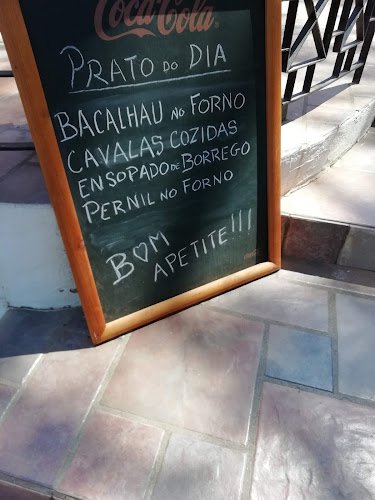 Coca-Cola
PRATO DO DIA
BACALHAU NO FORNO
CAVALAS COZIDAS
ENSOPADO DE BORREGO
PERNIL NO FORNO
BOM
APETITE!!!